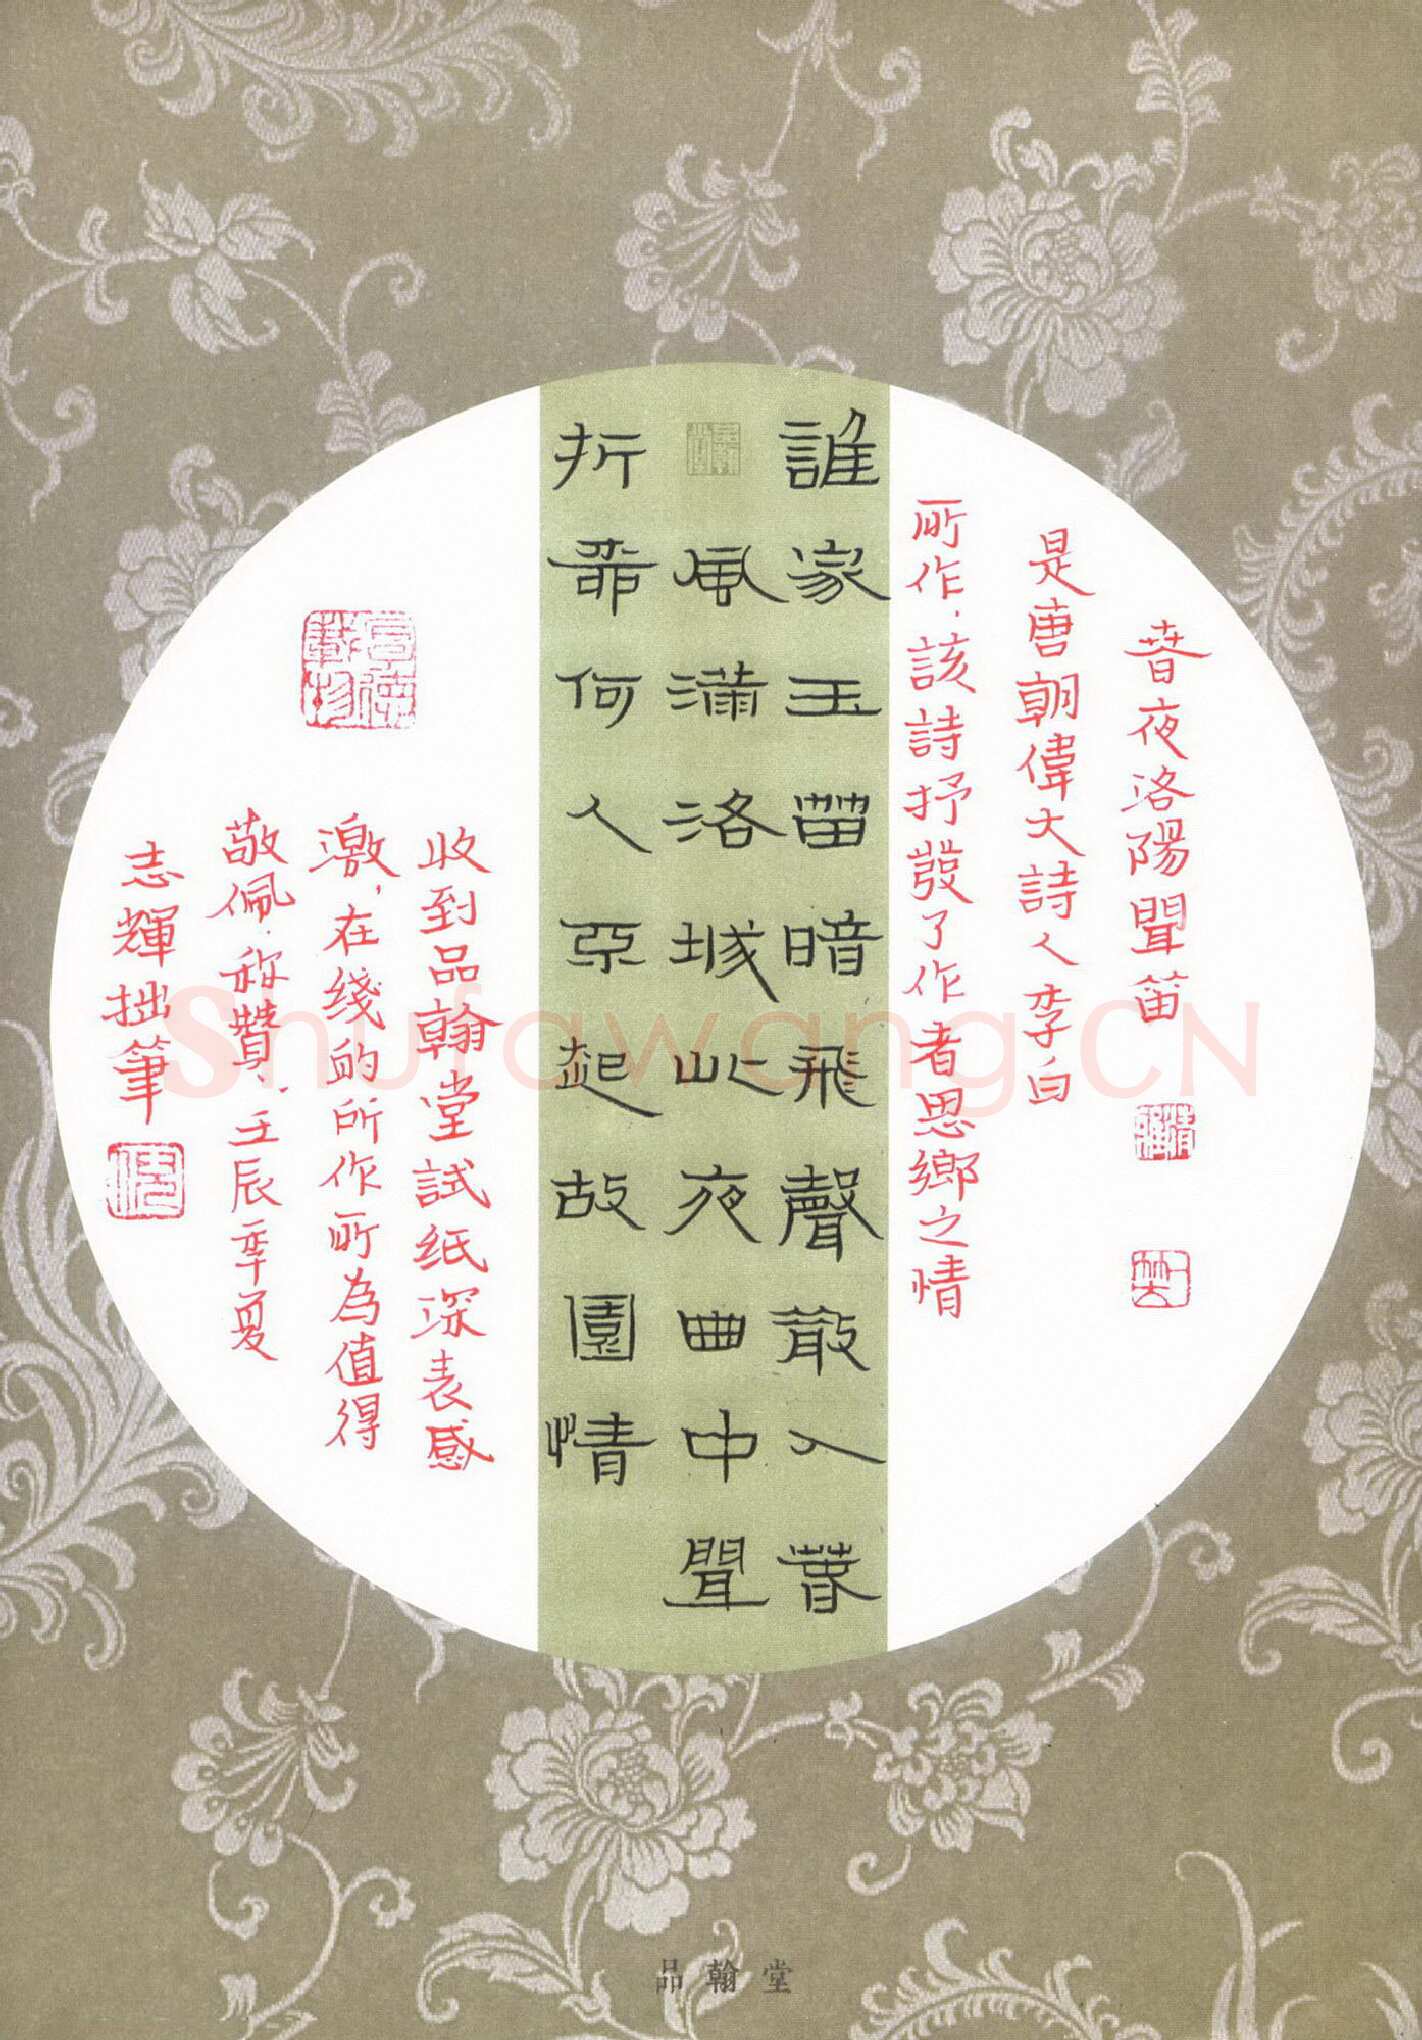 春夜洛陽聞笛
是唐朝偉大詩人李白
所作，該詩抒發了作者思鄉之情
誰家玉笛暗飛聲散入春
風滿洛城此夜曲中聞
折柳何人不起故園情
厚德載物
收到品翰堂試纸深表感
激，在綫的所作所為值得
敬佩.称贊、壬辰年夏
志輝拙筆
ShufawangCN
品翰堂